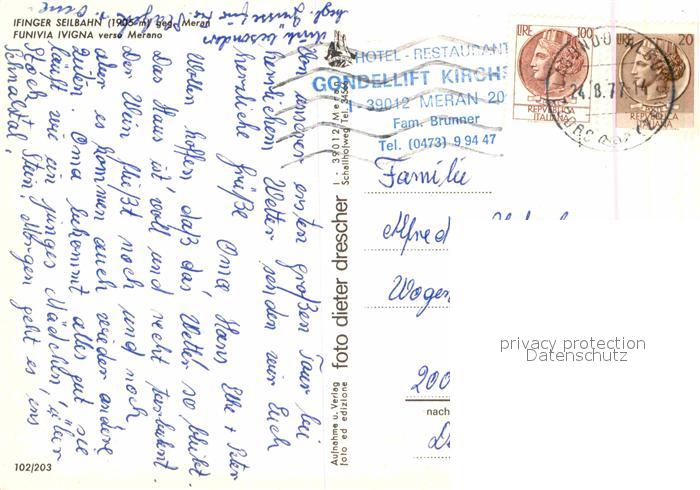 IFINGER SEILBAHN (1905 m) geg. Meran
FUNIVIA IVIGNA verso Merano
Von unserer ersten großen Tour bei
herrlichem Wetter senden wir Euch
herzliche Grüße Oma, Hans Elke + Peter
Wir hoffen, daß das Wetter so bleibt.
Das Haus ist voll und recht turbulent.
Der Wein fließt noch und noch
aber es kommen auch wieder andere
Zeiten. Oma bekommt alles gut sie
läuft wie ein junges Mädchen, über
Stock + Stein. Morgen geht es ins
Schnalstal.
102/203
Aufnahme u. Verlag
foto ed edizione
foto dieter drescher
I - 39012 Meran
Schallhofweg Tel. 34566
HOTEL - RESTAURANT
GONDELLIFT KIRCH
I - 39012 MERAN 20
Fam. Brunner
Tel. (0473) 9 94 47
LIRE 100
REPVBBLICA
ITALIANA
LIRE 20
REPVBBLICA
ITALIANA
24.8.77
Familie
Alfred
Wogen
200
nach
privacy protection
Datenschutz